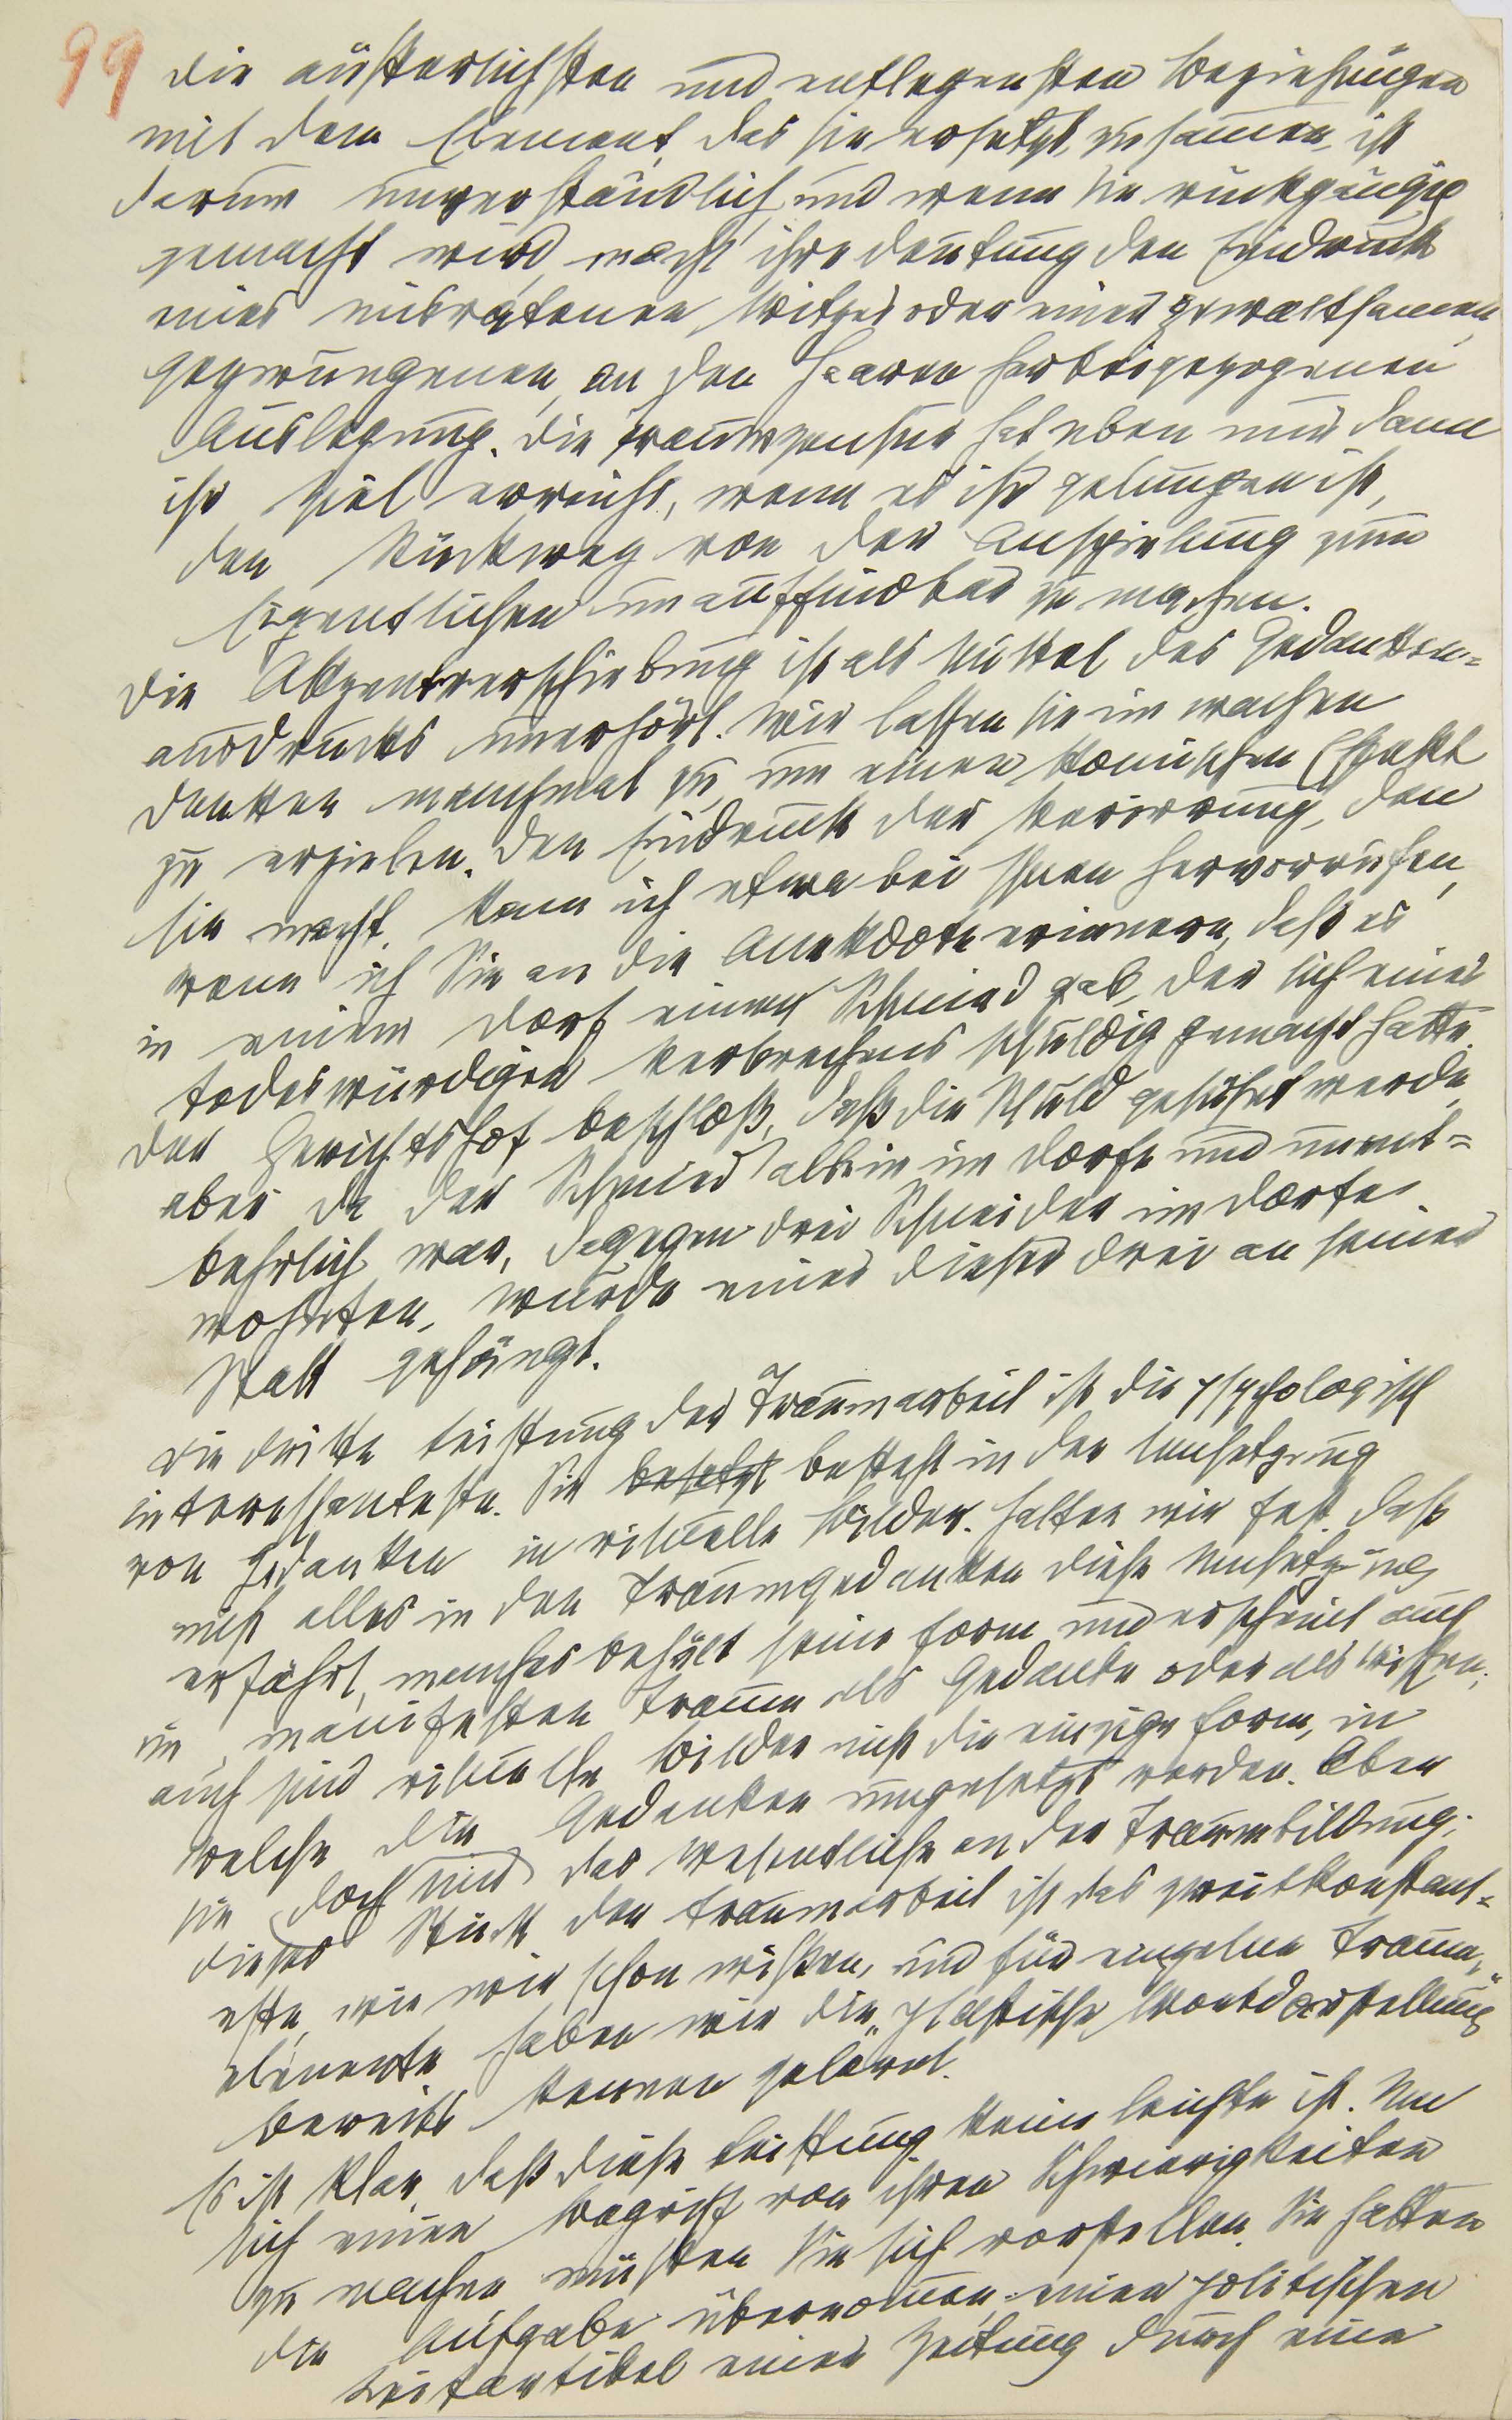 99
die äußerlichsten und entlegensten Beziehungen
mit dem Element, das sie ersetzt, zusammen, ist
darum unverständlich, und wenn sie rückgängig
gemacht wird, macht ihre Deutung den Eindruck
eines mißratenen Witzes oder einer gewaltsamen,
gezwungenen, an den Haaren herbeigezogenen
Auslegung. Die Traumzensur hat eben nur dann
ihr Ziel erreicht, wenn es ihr gelungen ist,
den Rückweg von der Anspielung zum
Eigentlichen unauffindbar zu machen.
Die Akzentverschiebung ist als Mittel des Gedanken=
ausdrucks unerhört. Wir lassen sie im wachen
Denken manchmal zu, um einen komischen Effekt
zu erzielen. Den Eindruck der Verirrung, den
sie macht, kann ich etwa bei Ihnen hervorrufen,
wenn ich Sie an die Anekdote erinnere, daß es
in einem Dorf einen Schmied gab, der sich eines
todeswürdigen Verbrechens schuldig gemacht hatte.
Der Gerichtshof beschloß, daß die Schuld gesühnt werde,
aber da der Schmied allein im Dorfe und unent=
behrlich war, dagegen drei Schneider im Dorfe
wohnten, wurde einer dieser drei an seiner
Statt gehängt.
Die dritte Leistung der Traumarbeit ist die psychologisch
interessanteste. Sie besetzt besteht in der Umsetzung
von Gedanken in visuelle Bilder. Halten wir fest, daß
nicht alles in den Traumgedanken diese Umsetzung
erfährt, manches behält seine Form und erscheint auch
im manifesten Traum als Gedanke oder als Wissen;
auch sind visuelle Bilder nicht die einzige Form, in
welche die Gedanken umgesetzt werden. Aber
sie doch sind das Wesentliche an der Traumbildung;
dieses Stück der Traumarbeit ist das zweitkonstant=
este, wie wir schon wissen, und für einzelne Traum„
elemente haben wir die „plastische Wortdarstellung"
bereits kennen gelernt.
Es ist klar, daß diese Leistung keine leichte ist. Um
sich einen Begriff von ihren Schwierigkeiten
zu machen müssen Sie sich vorstellen, Sie hätten
die Aufgabe übernommen, einen politischen
Leitartikel einer Zeitung durch eine